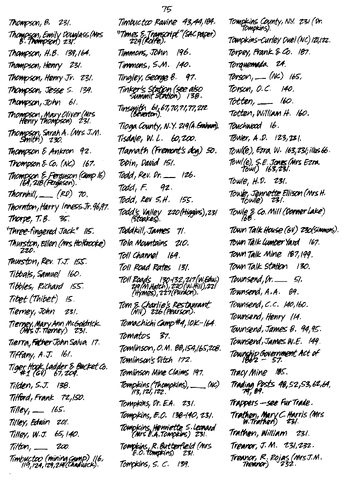 75
Thompson, B. 231.
Thompson, Emily Douglass (Mrs
B. Thompson) 231.
Thompson, H.B. 138, 164.
Thompson, Henry 231.
Thompson, Henry Jr. 231.
Thompson, Jesse S. 139.
Thompson, John 61.
Thompson, Mary Oliver (Mrs
Henry Thompson) 231.
Thompson, Sarah A. (Mrs J.M.
Smith) 230.
Thompson & Ankron 92.
Thompson & Co. (NC) 167.
Thompson & Ferguson (Camp 15)
Thornhill, ___ 70.
Thornton, Harry Inness Jr. 96, 97.
Thorpe, T.B. 35.
"Three-fingered Jack" 115.
Thurston, Ellen (Mrs Holbrooke)
220.
Thurston, Rev. T.J. 155.
Tibbals, Samuel 160.
Tibbles, Richard 155.
Tibet (Thibet) 15.
Tierney, John 231.
Tierney, Mary Ann McGoldrick
(Mrs J. Tierney) 231.
Tierra, Father John Salva 17.
Tiffany, A.J. 161.
Tiger Hook, Ladder & Bucket Co.
#1 (GV) 67, 204.
Tilden, S.J. 138.
Tifford, Frank 72, 150.
Tilley, ___ 165.
Tilley, Edwin 201.
Tilley, W.J. 65, 140.
Tilton, ___ 200.
Timbuctoo (mining camp) 116,
119, 124, 129, 214 (Chadwick).
Timbuctoo Ravine 43, 44, 184.
"Times & Transcript" (SAC paper)
224 (Rolfe).
Timmons, John 196.
Timmons, S.M. 140.
Tingley, George B. 97.
Tinker's Station (see also
Summit Station) 138.
Tinsmith 61, 67, 70, 71, 77, 212
Tioga County, N.Y. 219 (A. Graham).
Tisdale, W.L. 60, 200.
Tlamath (Fremont's dog) 50.
Tobin, David 151.
Todd, Rev. Dr. ___ 126.
Todd, F. 92.
Todd, Rev S.H. 155.
Todd's Valley 220 (Higgins), 231
Toddkill, James 71.
Tola Mountains 210.
Toll Channel 164.
Toll Road Rates 131.
Toll Roads
Tom & Charlie's Restaurant
226 (Pearson).
Tomachichi Camp #4, 10K-164.
Tomatoes 87.
Tomlinson, O.M. 88, 154, 165, 208.
Tomlinson's Ditch 172.
Tomlinson Mine Claims 197.
Tompkins (Thompkins), ___ (NC)
113, 121, 122.
Tompkins, Dr. E.A. 231.
Tompkins, E.O. 138-140, 231.
Tompkins, Henriette S. Leonard
(Mrs E.A. Tompkins) 231.
Tompkins, R. Butterfield (Mrs
E.O. Tompkins) 231.
Tompkins, S.C. 139.
Tompkins County, N.Y. 231 (Dr.
Tompkins).
Tompkins-Curley Duel (NC) 121, 122.
Torpey, Frank & Co. 187.
Torquemada 24.
Torson, ___ (NC) 165.
Torson, O.C. 140.
Totten, ___ 160.
Totten, William H. 160.
Touchwood 16.
Towler, A.D. 123, 231.
Towl(e), Ezra W. 163, 231; illus 66.
Towl(e), S.E. Jones (Mrs Ezra
Towl) 163, 231.
Towle, H.D. 231.
Towle, Jeannette Ellison (Mrs H.
Towle) 231.
Towle & Co. Mill (Donner Lake)
168.
Town Talk House (GV) 230 (Simmons).
Town Talk Lumber Yard 167.
Town Talk Mine 187, 199.
Town Talk Station 130.
Townsend, Dr. ___ 51.
Townsend, A.A. 89.
Townsend, C.C. 140, 160.
Townsend, Henry 114.
Townsend, James B. 94, 95.
Townsend, James W.E. 149.
Township Government Act of
1862 57.
Tracy Mine 185.
Trading Posts 48, 52, 53, 62, 64,
79, 89.
Trappers — see Fur Trade.
Trathen, Mary C. Harris (Mrs
W. Trathen) 231.
Trathen, William 231.
Treanor, J.M. 231, 232.
Treanor, R. Rojas (Mrs J.M.
Treanor) 232.